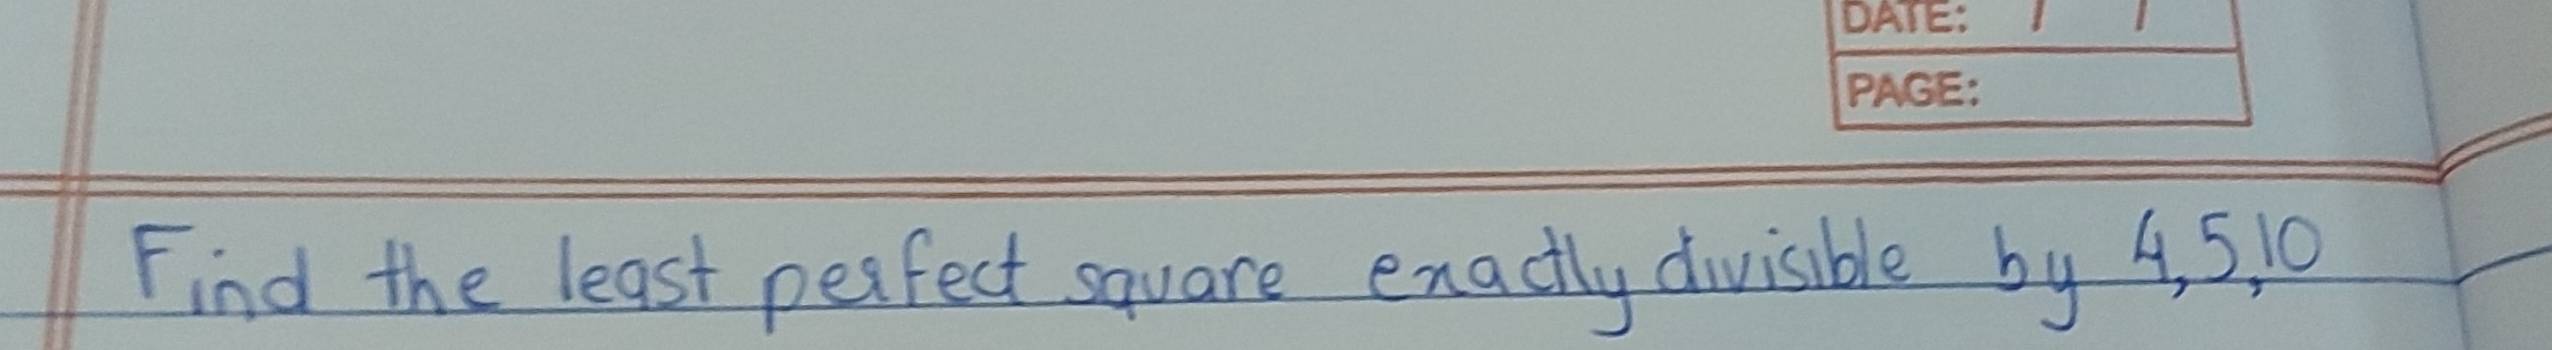 DATE: / /
PAGE:
Find the least perfect square exactly divisible by 4,5,10